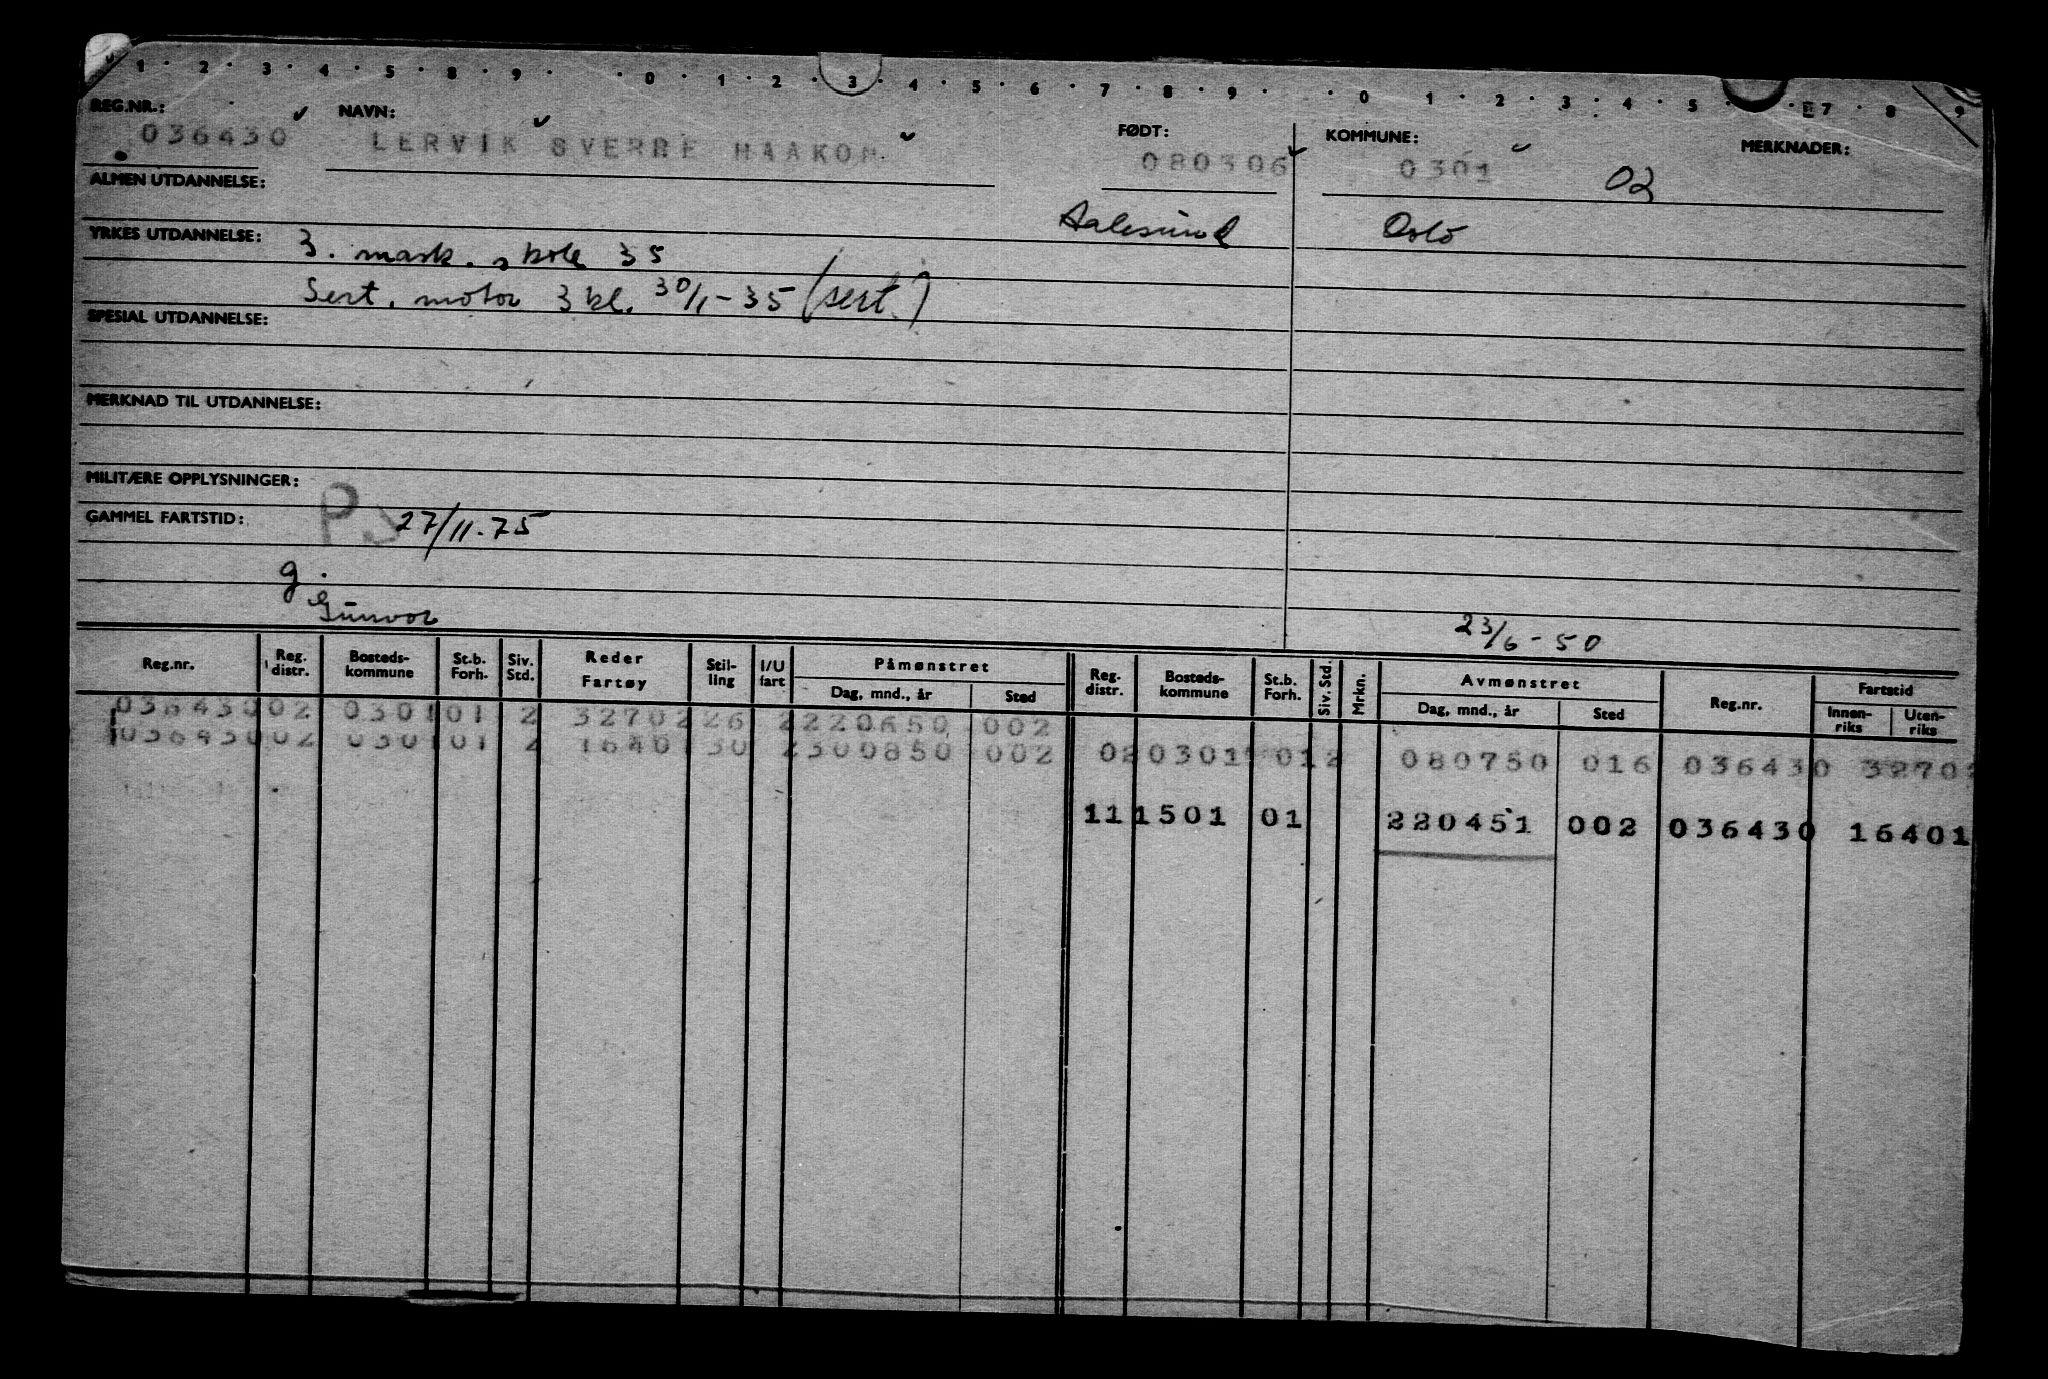 1 · 2 · 3 · 4 · 5 · 8 · 9 · · 0 · 1 · 2 · 3 · 4 · 5 · 6 · 7 · 8 · 9 · · 0 · 1 · 2 · 3 · 4 · 5 · · 7 · 8 · 9
REG.NR.: NAVN: FØDT: KOMMUNE: MERKNADER:
036430 LERVIK SVERRE HAAKON 080306 0301 02
ALMEN UTDANNELSE:
Aalesund Oslo
YRKES UTDANNELSE: 3. mask. skole 35
Sert. motor 3 kl. 30/1-35 (sert.)
SPESIAL UTDANNELSE:
MERKNAD TIL UTDANNELSE:
MILITÆRE OPPLYSNINGER:
GAMMEL FARTSTID: 27/11.75
g.
Gunvor
23/6-50
Reg.nr. Reg. distr. Bosteds-kommune St.b. Forh. Siv. Std. Reder Fartøy Stil-ling I/U fart Påmønstret Dag, mnd., år Sted Reg. distr. Bosteds-kommune St.b. Forh. Siv. Std. Mrkn. Avmønstret Dag, mnd., år Sted Reg.nr. Fartstid Innen-riks Uten-riks
036430 02 0301 01 2 32702 26 2 220650 002
036430 02 0301 01 2 16401 30 2 300850 002 02 0301 01 2 080750 016 036430 32702
11 1501 01 220451 002 036430 16401